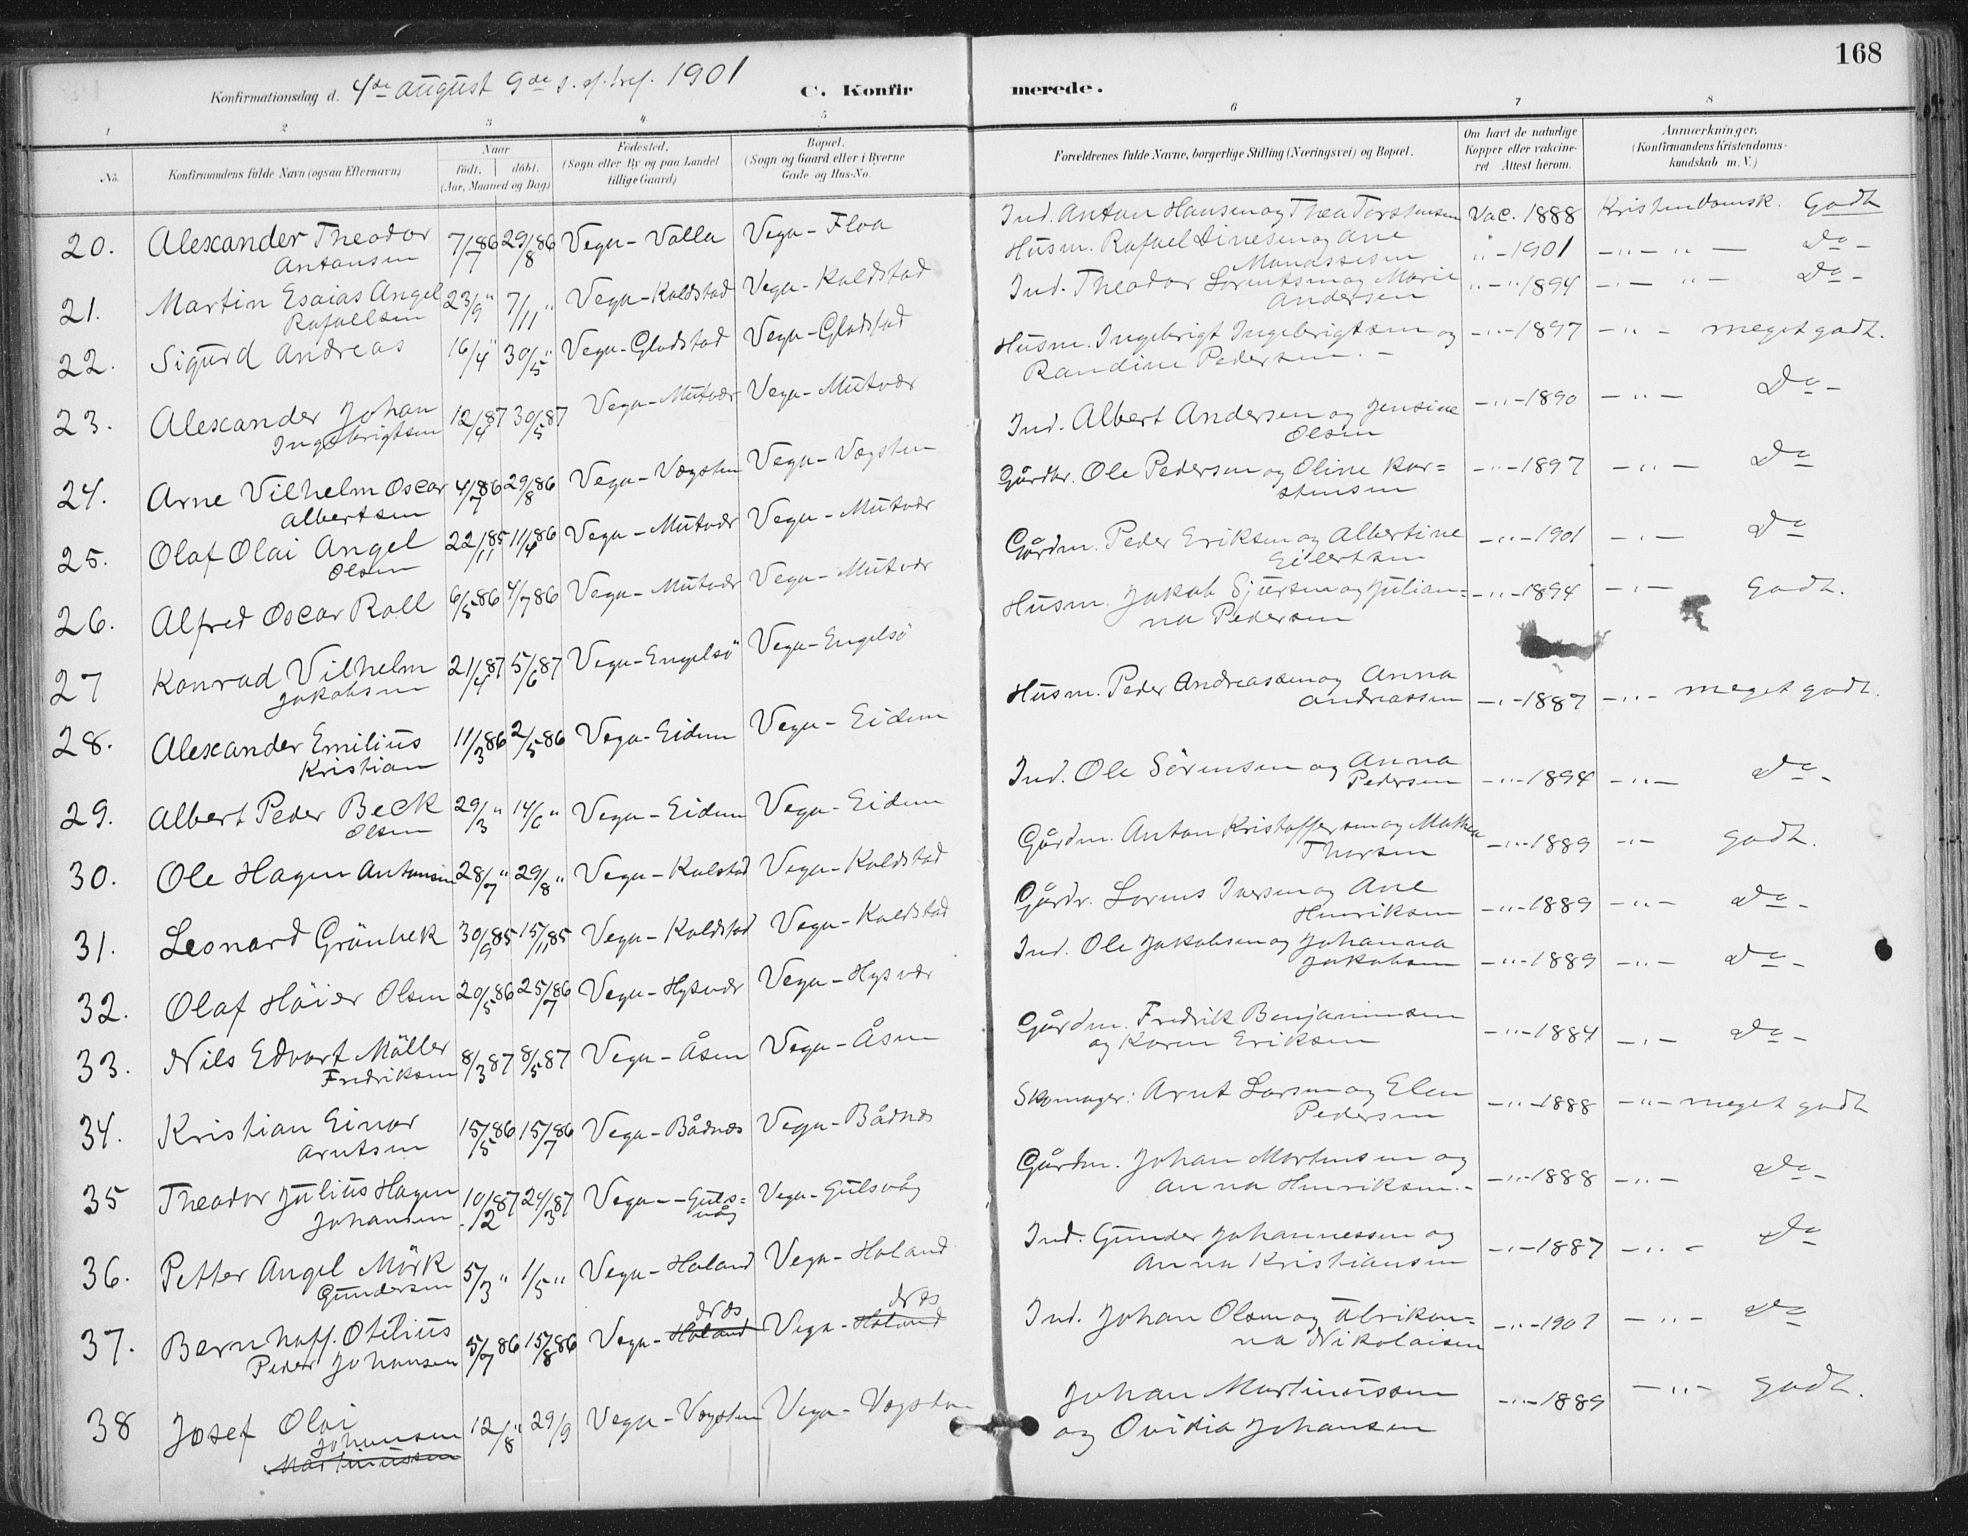 168
Konfirmationsdag d. 4de august 9de s. ef. tref. 1901
C. Konfirmerede.
1 2 3 4 5 6 7 8
No. Konfirmandens fulde Navn (ogsaa Efternavn)
Naar født. døbt. (Aar, Maaned og Dag)
Fødested. (Sogn eller By og paa Landet tillige Gaard)
Bopæl. (Sogn og Gaard eller i Byerne Gade og Hus-No.
Forældrenes fulde Navne, borgerlige Stilling (Næringsvei) og Bopæl.
Om havt de naturlige Kopper eller vaccineret Attest herom.
Anmærkninger, (Konfirmandens Kristendomskundskab m. V.)
20. Alexander Theodor Antonsen 7/7 86 29/8 86 Vega - Valla Vega - Floa Ind. Anton Hansen og Thea Torstensen Vac. 1888 Kristendomsk. Godt
21. Martin Esaias Angel Rafaelsen 23/9 " 7/11 " Vega - Koldstad Vega - Koldstad Husm. Rafael Dinesen og Ane Manassesen " - 1901 - " - " - Do -
22. Sigurd Andreas 16/4 " 30/5 " Vega - Gladstad Vega - Gladstad Ind. Theodor Lorentsen og Marie Andersen " - " 1894 - " - " - Do -
23. Alexander Johan Ingebrigtsen 12/4 87 30/5 87 Vega - Mutvær Vega - Mutvær Husm. Ingebrigt Ingebrigtsen og Randine Pedersen. - - " - 1897 - " - meget godt.
24. Arne Vilhelm Oscar Albertsen 4/7 86 29/8 86 Vega - Vægsten Vega - Vægsten Ind. Albert Andersen og Jensine Olsen - " - 1890 - " - Do -
25. Olaf Olai Angel Olsen 22/11 85 11/4 86 Vega - Mutvær Vega - Mutvær Gårdbr. Ole Pedersen og Oline Karstensen - " - 1897 - " - Do
26. Alfred Oscar Roll 6/5 86 4/7 86 Vega - Mutvær Vega - Mutvær Gårdm. Peder Eriksen og Albertine Eilertsen - " - 1901 - " - Do
27 Konrad Vilhelm Jakobsen 21/4 87 5/6 87 Vega - Engelsö Vega - Engelsö Husm. Jakob Sjursen og Julianna Pedersen - " - 1894 - " - godt.
28. Alexander Emilius Kristian 11/3 86 2/5 86 Vega - Eidem Vega - Eidem Husm. Peder Andreassen og Anna Andreassen - " - 1887 - " - meget godt.
29. Albert Peder Beck Olsen 29/3 " 14/6 " Vega - Eidem Vega - Eidem Ind. Ole Sörensen og Anna Pedersen - " - 1894 - " - Do -
30. Ole Hagen Antonsen 28/7 " 29/8 " Vega - Kolstad Vega - Koldstad Gårdm. Anton Kristoffersen og Mathea Thorsen - " - 1889 - " - godt.
31. Leonard Grönbek 30/9 85 15/11 85 Vega - Koldstad Vega - Koldstad Gårdr. Lorens Iversen og Ane Henriksen - " - 1889 - " - Do -
32. Olaf Höier Olsen 20/5 86 25/7 86 Vega - Hysvær Vega - Hysvær Ind. Ole Jakobsen og Johanna Jakobsen - " - 1889 - " - Do -
33. Nils Edvart Möller Fredriksen 8/3 87 8/5 87 Vega - Åsen Vega - Åsen Gårdm. Fredrik Benjaminsen og Karen Eriksen - " - 1884 - " - Do -
34. Kristian Einar Arntsen 15/5 86 15/7 86 Vega - Bådnæs Vega - Bådnæs Skomager: Arnt Larsen og Elen Pedersen - " - 1888 - " - meget godt
35 Theodor Julius Hagen Johansen 10/12 87 24/3 87 Vega - Gulsvåg Vega - Gulsvåg Gårdm. Johan Mortensen og Anna Henriksen. - - " - 1888 - " - Do -
36. Petter Angel Mörk Gundersen 5/3 " 1/5 " Vega - Holand Vega - Holand Ind. Gunder Johannessen og Anna Kristiansen - " - 1887 - " - Do
37. Bernhoff. Otilius Peder Johansen 5/7 86 15/8 86 Vega - Holand Næs Vega - Holand Næs Ind. Johan Olsen og Ulrikanna Nikolaisen - " - 1901 - " - Do
38 Josef Olai Johansen Martinussen 12/8 " 29/9 Vega - Vægsten Vega - Vægsten Johan Martinussen og Ovidia Johansen - " - 1889 - " - godt.